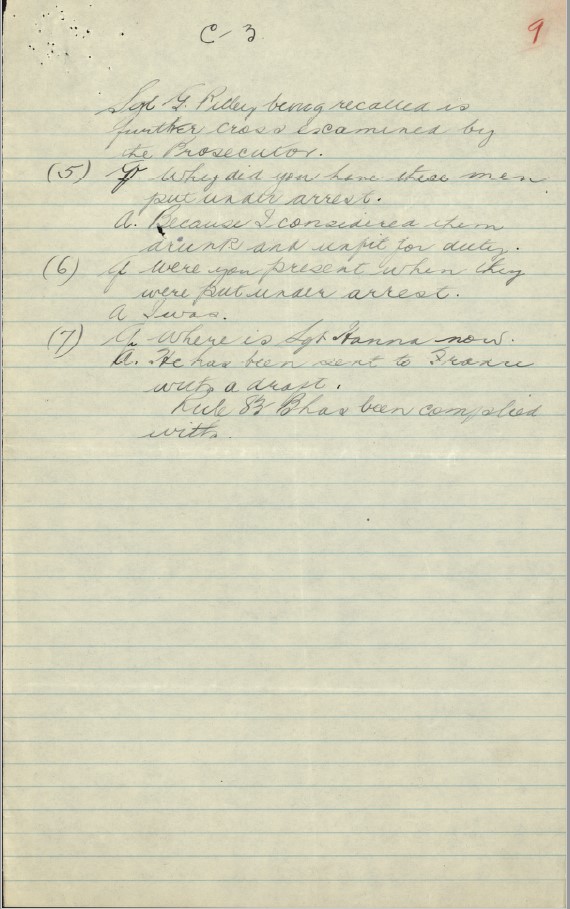 C-3
9
Sgt G. Rilley being recalled is
further cross examined by
the Prosecutor.
(5) Q Why did you have these men
put under arrest.
A. Because I considered them
drunk and unfit for duty.
(6) Q Were you present when they
were put under arrest.
A I was.
(7) Q Where is Sgt Hanna now.
A. He has been sent to France
with a draft.
Rule 83 B has been complied
with.